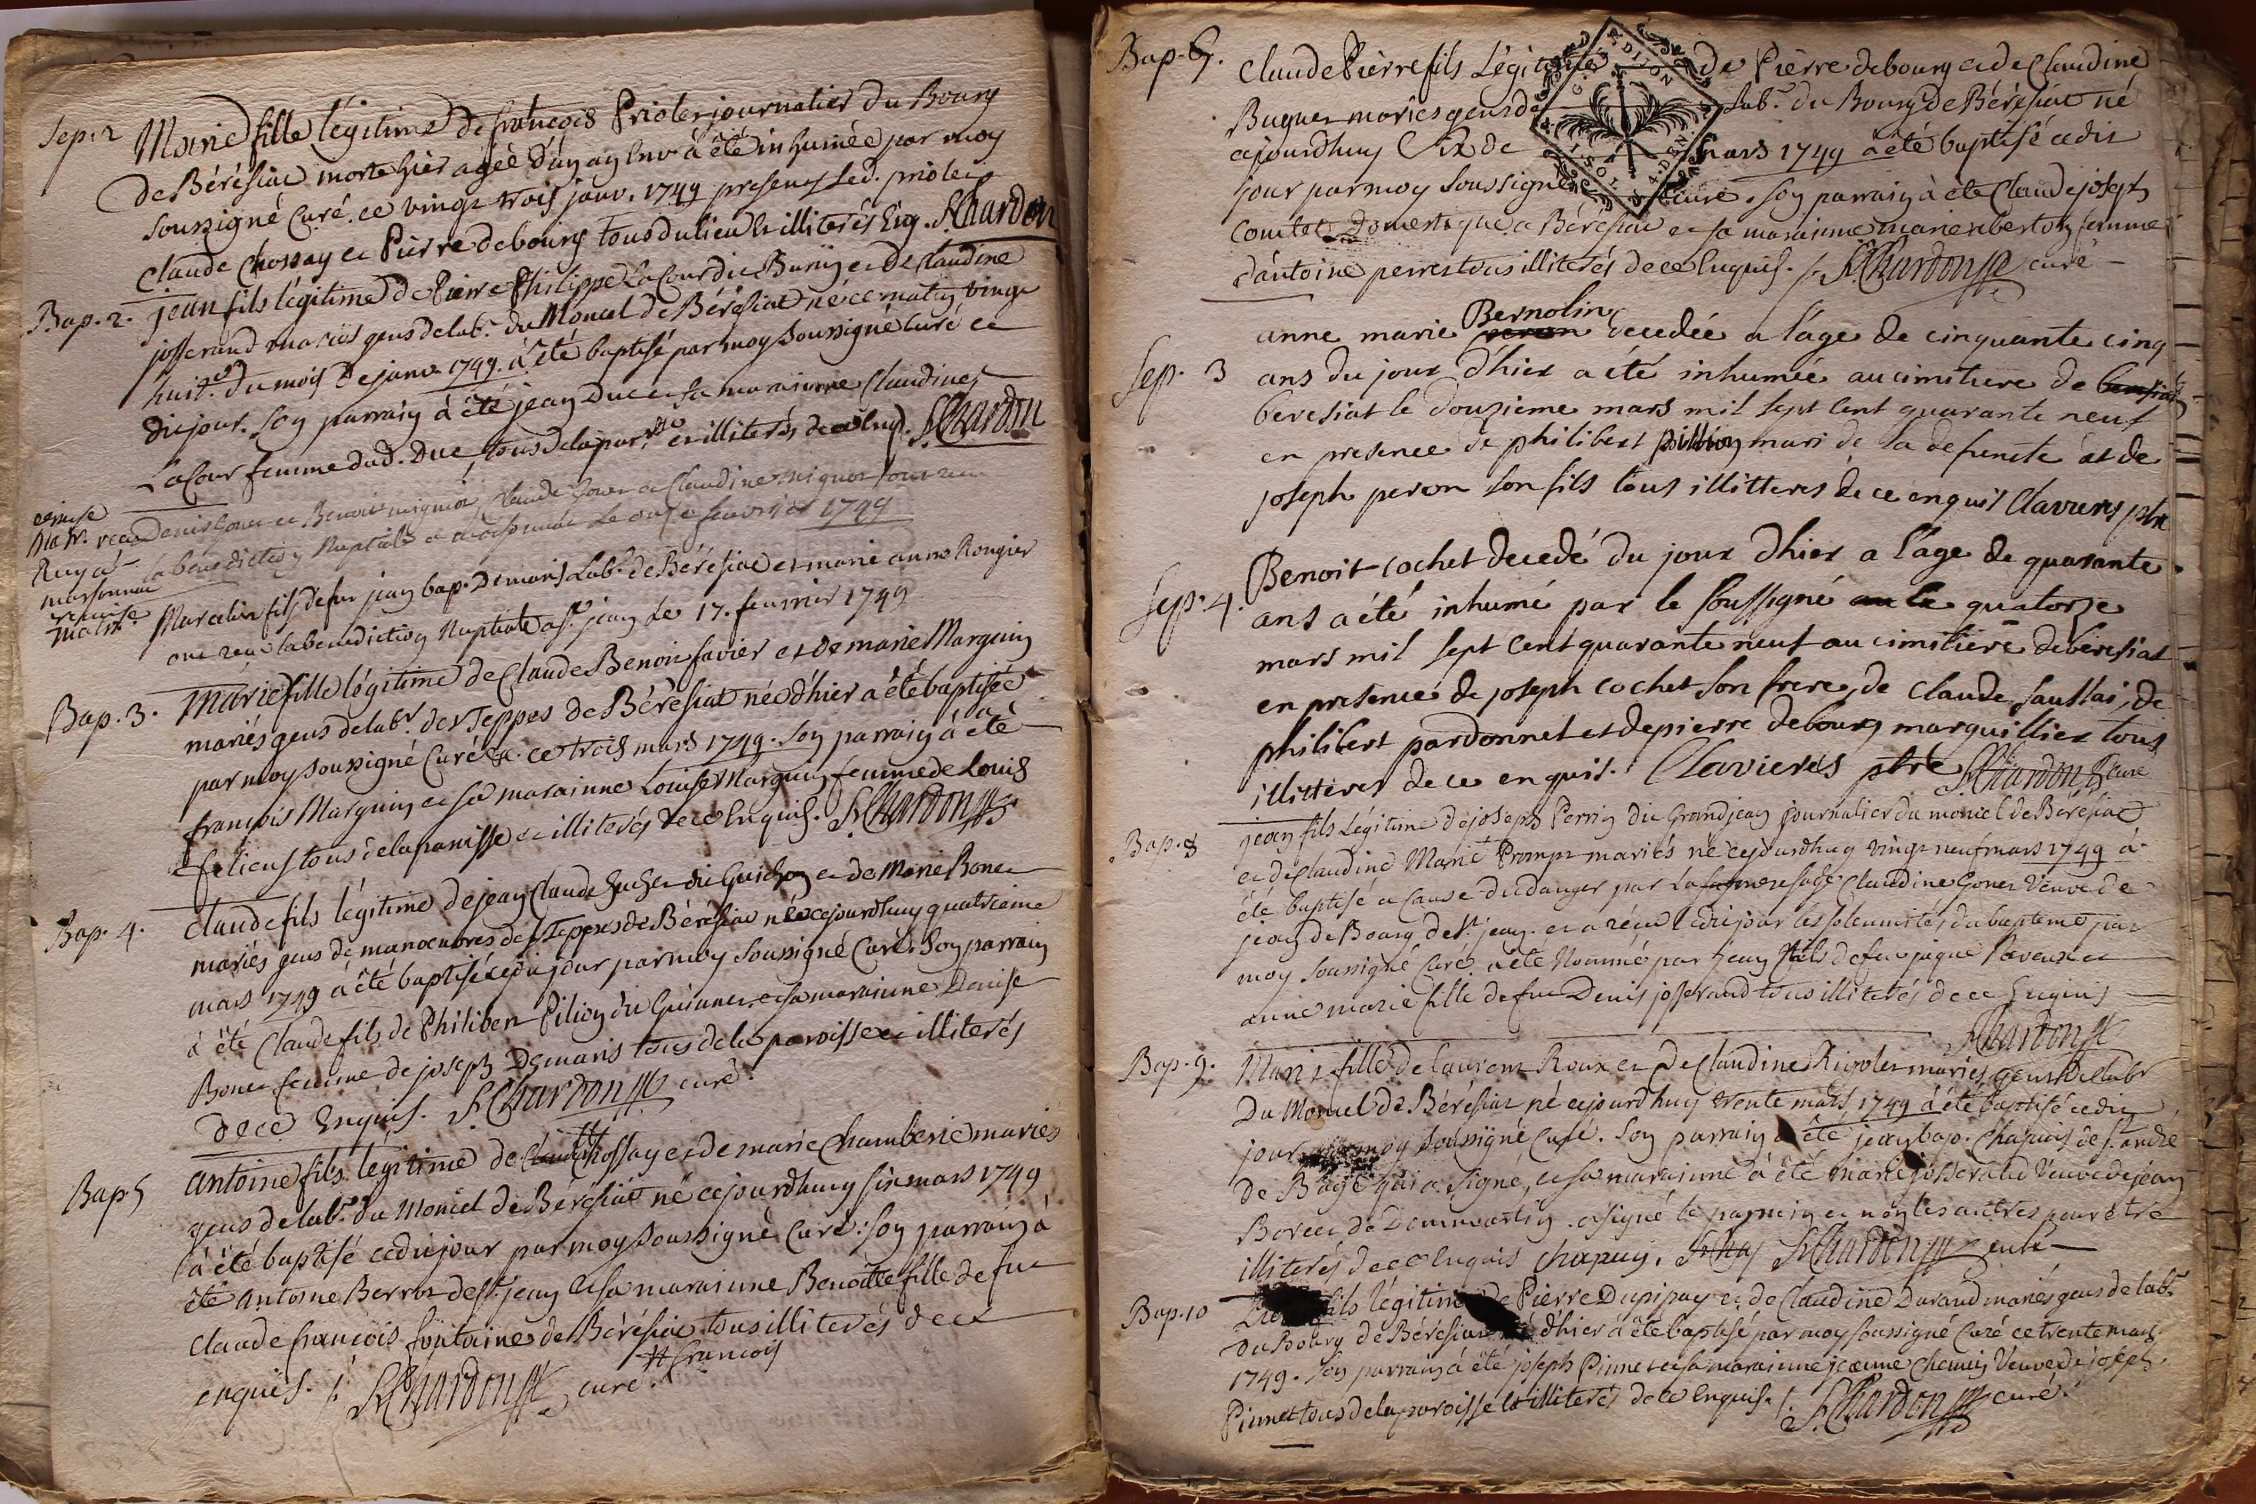 Sep. 2
Marie fille légitime de françois Priolet journalier du Bourg
de Bérésiat morte hier agée d'un an env. à été inhumée par moy
soussigné Curé ce vingt trois janv. 1749 presens led. priolet
Claude Chossay et Pierre debourg tous du lieu & illiterés Enq. S. Chardon
Bap. 2.
jean fils légitime de Pierre Philippe LaCour dit Buny et de Claudine
josserand mariés gens de lab.r du Moncel de Bérésiat né ce matin vingt
huit.e du mois de janv. 1749. à été baptisé par moy soussigné curé ce
dit jour. Son parrain à été jean Duc et sa marainne Claudine
LaCour femme dud. Duc, tous de la par.sse et illiterés de ce Enq. S. Chardon
remise
Mar.
Denis Goner et Benoite mignot, Claude Goner et Claudine mignot ont recu
la benediction Nuptiale a marsonnas Le onze fevrier 1749
marsonnas
remise
Mar.
Marcelin fils de feu jean bap. Demaris Lab.r de Bérésiat et marie anne Rongier
ont reçu la benediction Nuptiale a S.t jean le 17. fevrier 1749
Bap. 3.
Marie fille légitime de Claude Benoit favier et de marie Marguin
mariés gens de lab.r des Teppes de Bérésiat née d'hier a été baptisée
par moy soussigné Curé ce trois mars 1749. Son parrain à été
françois Marguin et sa marainne Louise Marguin femme de Louis
felieus tous de la paroisse et illiterés de ce Enquis. S. Chardon
Bap. 4.
Claude fils légitime de jean Claude dit Guichon et de Marie Boner
mariés gens de manoeuvres des Teppes de Bérésiat né cejourdhuy quatrieme
mars 1749 à été baptisé cedit jour par moy soussigné Curé. Son parrain
à été Claude fils de Philibert Pilion dit Guionnet et sa marainne Denise
Boner femme de joseph Demaris tous de la paroisse et illiterés
de ce Enquis. S. Chardon curé.
Bap 5
antoine fils légitime de Claude # Chossay et de marie Chamberie mariés
gens de lab.r du Moncel de Bérésiat né cejourdhuy six mars 1749
à été baptisé cedit jour par moy soussigné Curé: Son parrain à
été antoine Berrot de S.t jean et sa marainne Benoitte fille de feu
Claude françois fontaine de Bérésiat tous illiterés de ce
enquis. S. Chardon curé. # francois
Bap. 6.
Claude Pierre fils Légitime de Pierre debourg et de Claudine
Buguet mariés gens de lab.r du Bourg de Bérésiat né
cejourdhuy dix de mars 1749 à été baptisé cedit
G. DE DIJON
1 SOL 4. DEN.
jour par moy soussigné curé. Son parrain à été Claude joseph
Comtet Domestique a Bérésiat et sa marainne marie berton femme
d'antoine perret tous illiterés de ce Enquis. S. Chardon curé
Sep. 3
anne marie Bernolin decedée a l'age de cinquante cinq
ans du jour d'hier a été inhumée au cimetiere de
beresiat le douzieme mars mil sept cent quarante neuf
en presence de philibert pillion mari de la defuncte et de
joseph peron son fils tous illitteres de ce enquis Clavieres ptre
Sep. 4.
Benoit cochet decedé du jour d'hier a l'age de quarante
ans a été inhumé par le soussigné au le quatorze
mars mil sept cent quarante neuf au cimitiere de beresiat
en presence de joseph cochet son frere, de claude saussai, de
philibert pardonnet et de pierre debourg marguillier tous
illitteres de ce enquis. Clavieres ptre S. Chardon curé
Bap. 8
jean fils Légitime de joseph Perrin dit Grandjean journalier du moncel de Bérésiat
et de Claudine Marie Prompt mariés né cejourdhuy vingt neuf mars 1749 à
été baptisé a cause du danger par la femme sage Claudine Goner Veuve de
jean de Bourg de S.t jean. et a reçu ledit jour les solemnités du bapteme par
moy soussigné Curé à été Nommé par jean fils de feu jaque Paveux et
anne marie fille de feu Denis josserand tous illiterés de ce Enquis
S. Chardon
Bap. 9.
Marie fille de laurent Roux et de Claudine Rivolet mariés gens de lab.r
Du Moncel de Bérésiat né cejourdhuy trente mars 1749 à été baptisé cedit
jour par moy soussigné Curé. Son parrain à été jean bap. Chapuis de S.t andré
de Bagé qui a signé, et sa marainne à été marie josserand Veuve de jean
Borcet de Dommartin. a signé le parrain et non les autres pour etre
illiterés de ce Enquis Chapuy. S. Chardon curé
Bap. 10
fils légitime de Pierre Dupupay et de Claudine Durand mariés gens de lab.r
Du Bourg de Bérésiat né d'hier à été baptisé par moy soussigné Curé ce trente mars
1749. Son parrain à été joseph Pinnet et sa marainne jeanne Chemin Veuve de joseph
Pinnet tous de la paroisse & illiterés de ce Enquis. S. Chardon curé.